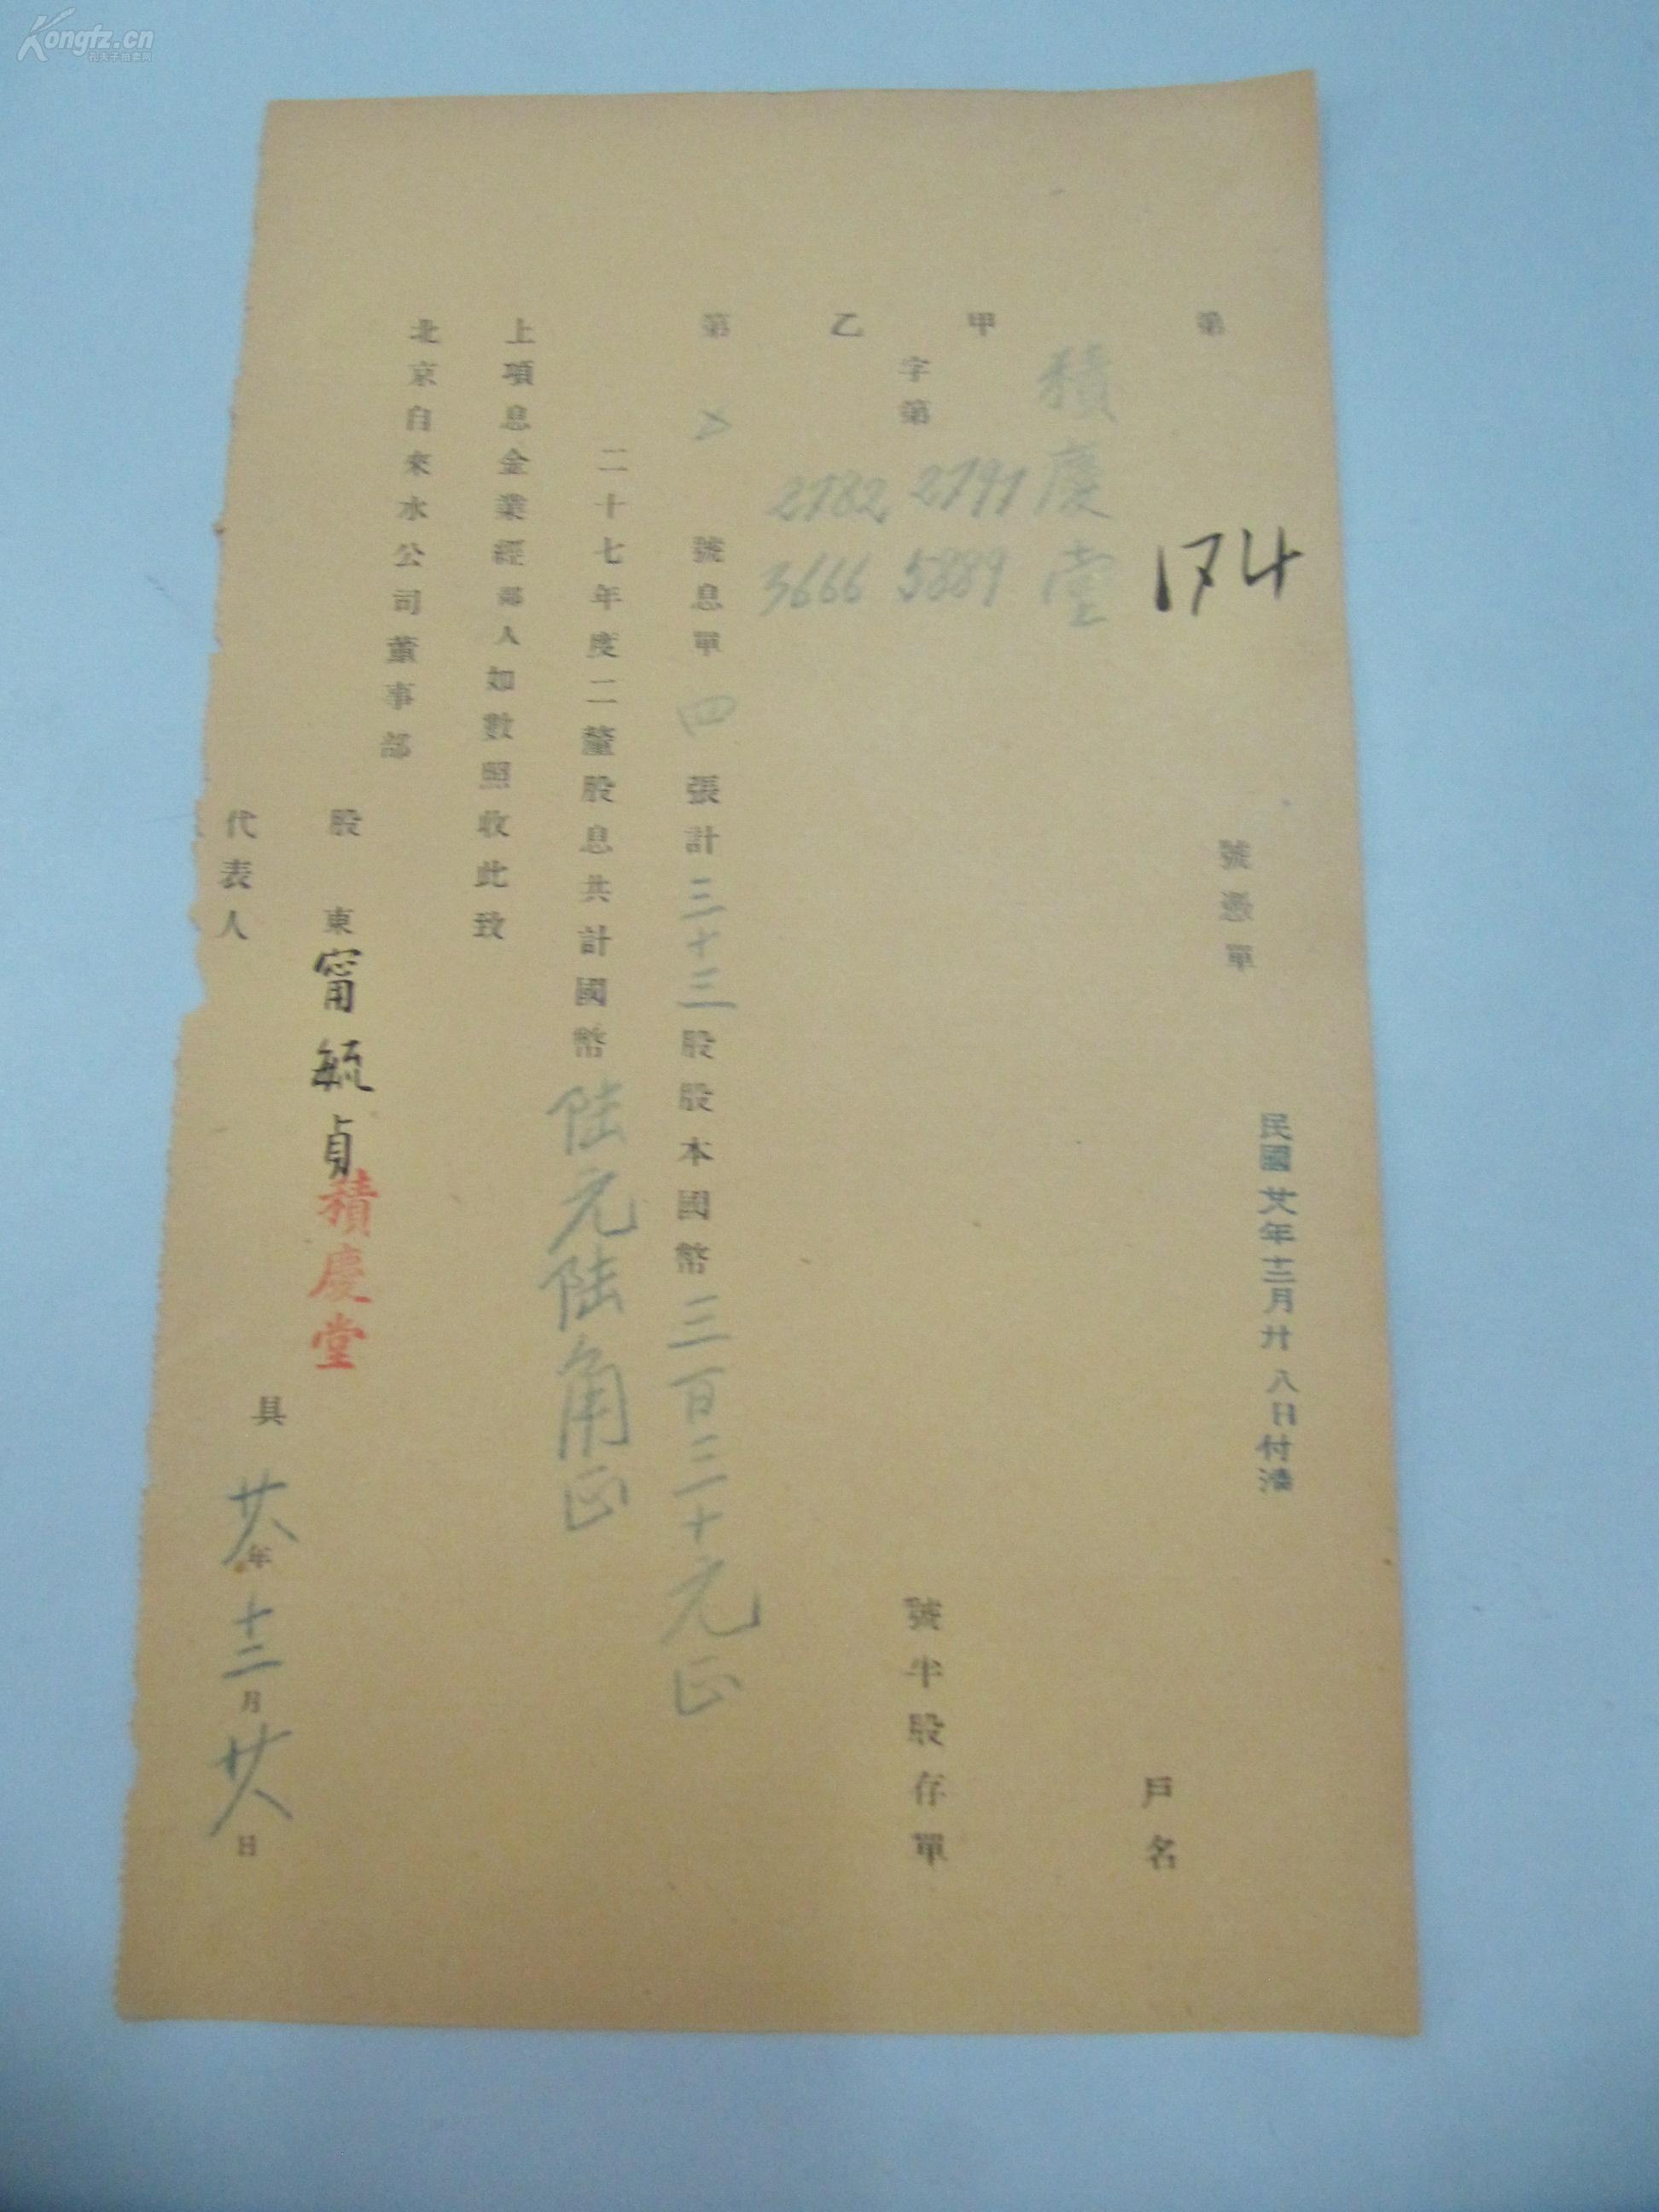 Kongfz.cn
孔夫子拍卖网
第 174 號憑單
民國廿八年十二月廿八日付清
積慶堂 戶名
甲
2791 5889
字第 號半股存單
乙
2782 3666
第 號息單四張計三十三股股本國幣三百三十元正
二十七年度二釐股息共計國幣陸元陸角正
上項息金業經鄙人如數照收此致
北京自來水公司董事部
股東 甯毓貞 積慶堂
代表人
具
廿八年十二月廿八日